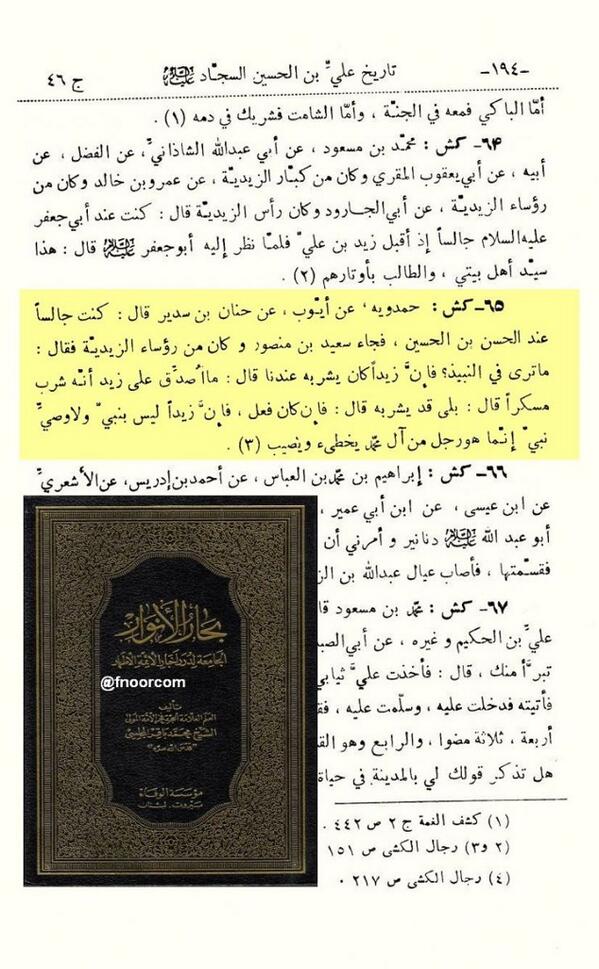 -١٩٤-    تاريخ عليّ بن الحسين السجّاد عليه السلام    ج ٤٦
أمّا الباكي فمعه في الجنّة ، وأمّا الشامت فشريك في دمه (١) .
٦٤- كش : محمّد بن مسعود ، عن أبي عبدالله الشاذاني ، عن الفضل ، عن
أبيه ، عن أبي يعقوب المقري وكان من كبّار الزيديّة ، عن عمرو بن خالد وكان من
رؤساء الزيديّة ، عن أبي الجارود وكان رأس الزيديّة قال : كنت عند أبي جعفر
عليه السلام جالساً إذ أقبل زيد بن عليّ فلمّا نظر إليه أبوجعفر عليه السلام قال : هذا
سيّد أهل بيتي ، والطالب بأوتارهم (٢) .
٦٥- كش : حمدويه ، عن أيّوب ، عن حنان بن سدير قال : كنت جالساً
عند الحسن بن الحسين ، فجاء سعيد بن منصور و كان من رؤساء الزيديّة فقال :
ماترى في النبيذ؟ فإنَّ زيداً كان يشربه عندنا قال : ما اُصدِّق على زيد أنّه شرب
مسكراً قال : بلى قد يشربه قال : فإن كان فعل ، فإنَّ زيداً ليس بنبيّ ولاوصيِّ
نبيّ إنّما هو رجل من آل محمّد يخطىء ويصيب (٣) .
٦٦- كش : إبراهيم بن محمّد بن العباس ، عن أحمد بن إدريس ، عن الأشعريّ
عن ابن عيسى ، عن ابن أبي عمير ،
أبو عبد الله عليه السلام دنانير و أمرني أن
فقسّمتها ، فأصاب عيال عبدالله بن الز
٦٧- كش : محمّد بن مسعود قا
عليّ بن الحكيم و غيره ، عن أبي الصب
تبرَّأ منك ، قال : فأخذت عليَّ ثيابي
فأتيته فدخلت عليه ، وسلّمت عليه ، فق
أربعة ، ثلاثة مضوا ، والرابع وهو القا
هل تذكر قولك لي بالمدينة في حياة
(١) كشف الغمة ج ٢ ص ٤٤٢ .
(٢ و٣) رجال الكشى ص ١٥١
(٤) رجال الكشى ص ٢١٧ .
بحار الأنوار
الجامعة لدرر أخبار الأئمة الأطهار
@fnoorcom
تأليف
العلم العلامة الحجة فخر الأمة المولى
الشيخ محمد باقر المجلسي
"قدس الله سره"
مؤسسة الوفاء
بيروت - لبنان